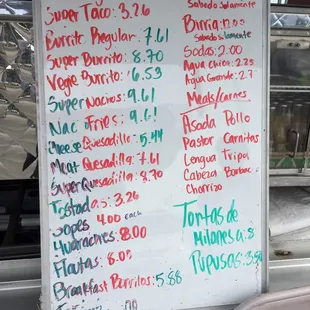 Super Taco: 3.26
Burrito Regular: 7.61
Super Burrito: 8.70
Vegie Burrito: 6.53
Super Nachos: 9.61
Nac Fries: 9.61
Cheese Quesadilla: 5.44
Meat Quesadilla: 7.61
Super Quesadilla: 8.70
Tostadas: 3.26
Sopes 4.00 each
Huaraches: 8.00
Flautas: 8.00
Breakfast Burritos: 5.88
Sabado Solamente
Birria: 12.00
Sabado solamente
Sodas: 2.00
Agua Chica: 2.25
Agua Grande: 2.7
Meats/Carnes
Asada Pollo
Pastor Carnitas
Lengua Tripa
Cabeza Barbac
Chorizo
Tortas de
Milanesa: 8
Pupusas: 3.80